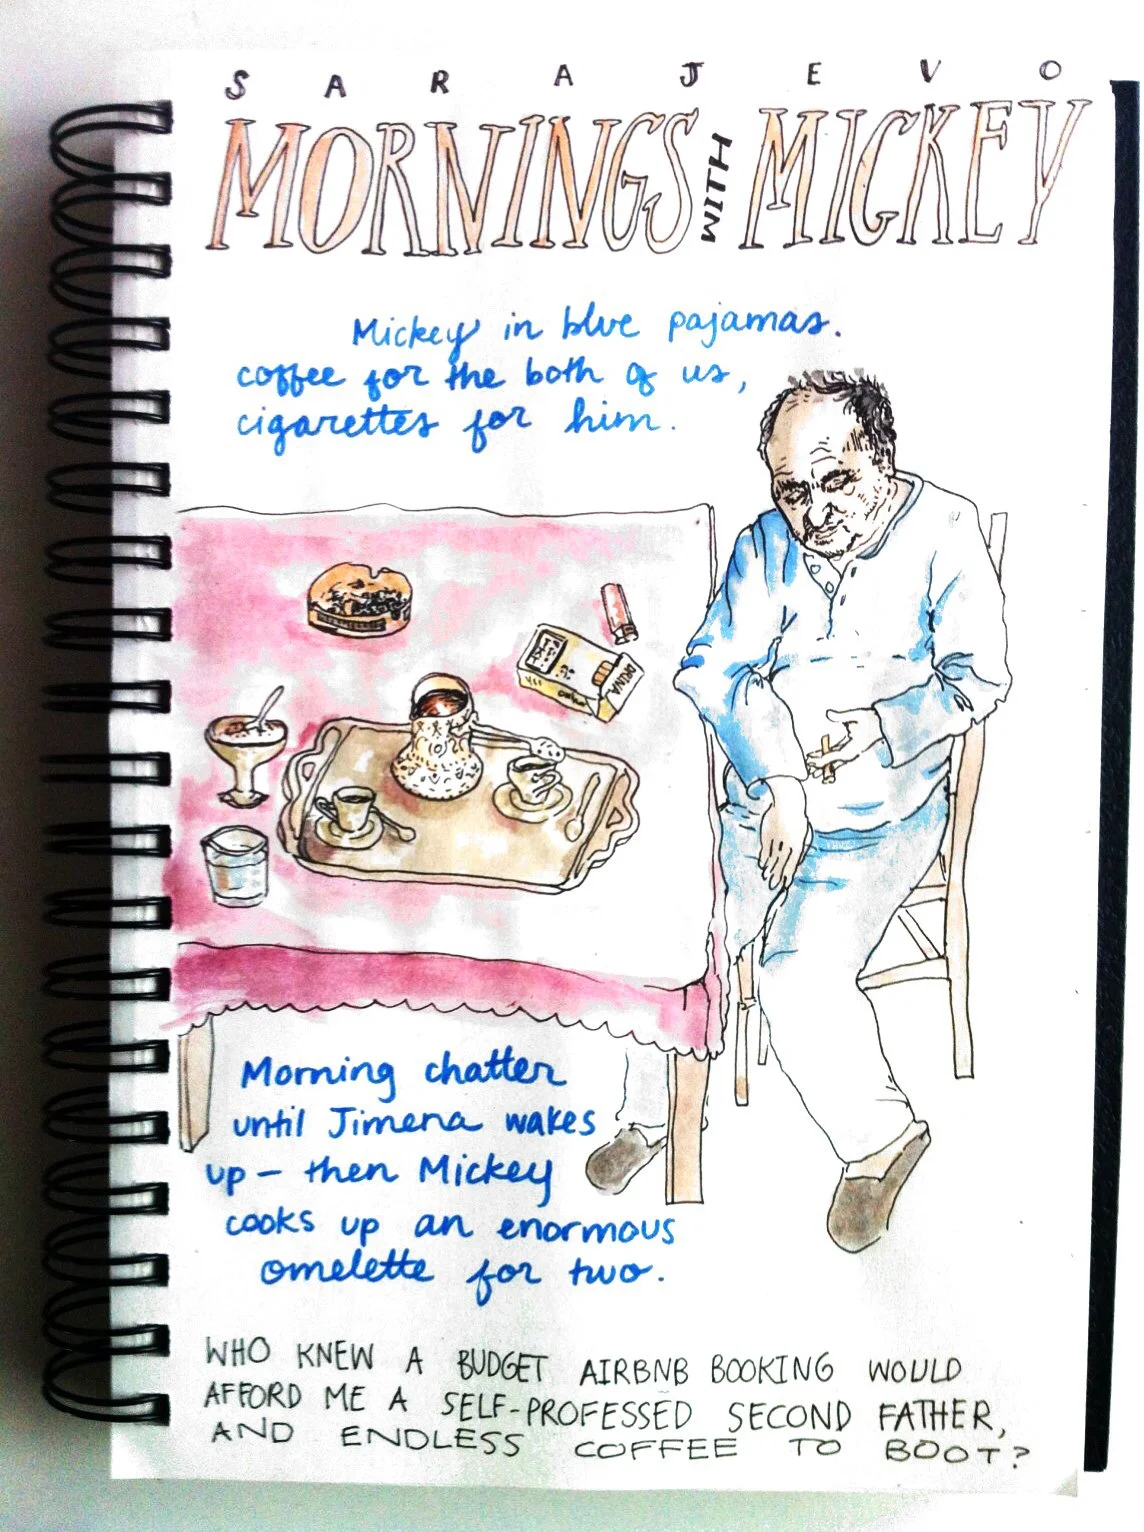 SARAJEVO
MORNINGS WITH MICKEY
Mickey in blue pajamas.
coffee for the both of us,
cigarettes for him.
DRINA
Morning chatter
until Jimena wakes
up – then Mickey
cooks up an enormous
omelette for two.
WHO KNEW A BUDGET AIRBNB BOOKING WOULD
AFFORD ME A SELF-PROFESSED SECOND FATHER,
AND ENDLESS COFFEE TO BOOT?